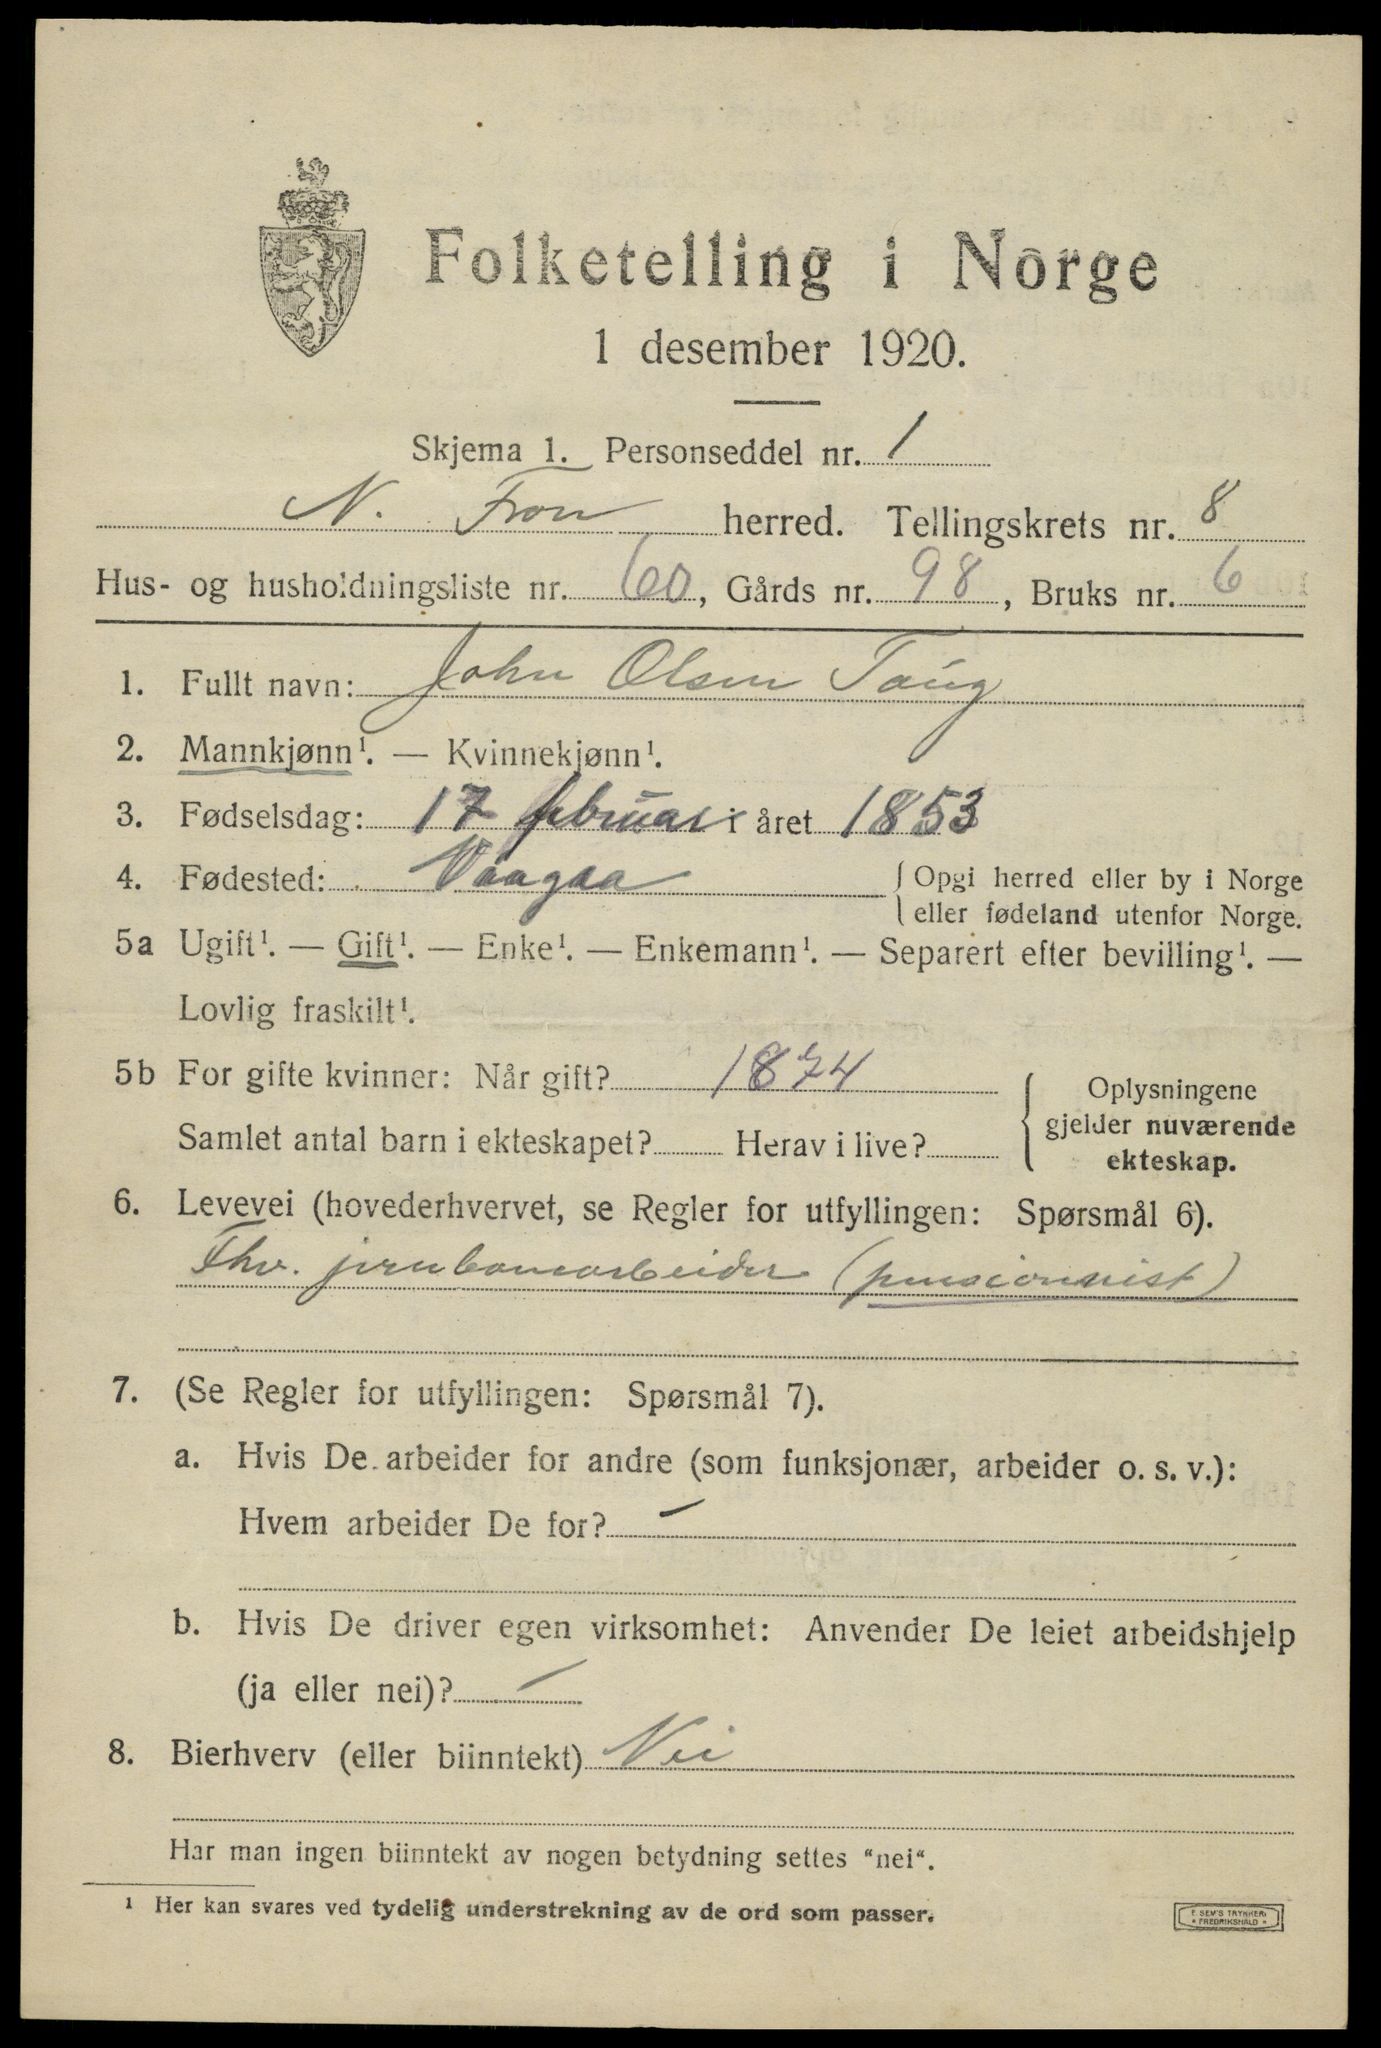 Folketelling i Norge
1 desember 1920.
Skjema 1. Personseddel nr. 1
N. Fron herred. Tellingskrets nr. 8
Hus- og husholdningsliste nr. 60, Gårds nr. 98, Bruks nr. 6
1. Fullt navn: John Olsen Taug
2. Mannkjønn¹. — Kvinnekjønn¹.
3. Fødselsdag: 17 februar i året 1853
4. Fødested: Vaagaa {Opgi herred eller by i Norge
eller fødeland utenfor Norge.
5a Ugift¹. — Gift¹. — Enke¹. — Enkemann¹. — Separert efter bevilling¹. —
Lovlig fraskilt¹.
5b For gifte kvinner: Når gift? 1874
Samlet antal barn i ekteskapet? Herav i live?
Oplysningene
gjelder nuværende
ekteskap.
6. Levevei (hovederhvervet, se Regler for utfyllingen: Spørsmål 6).
Fhv. jernbanearbeider (pensionnist)
7. (Se Regler for utfyllingen: Spørsmål 7).
a. Hvis De arbeider for andre (som funksjonær, arbeider o. s. v.):
Hvem arbeider De for? —
b. Hvis De driver egen virksomhet: Anvender De leiet arbeidshjelp
(ja eller nei)? —
8. Bierhverv (eller biinntekt) Nei
Har man ingen biinntekt av nogen betydning settes "nei".
¹ Her kan svares ved tydelig understrekning av de ord som passer.
E. SEM'S TRYKKERI
* FREDRIKSHALD *